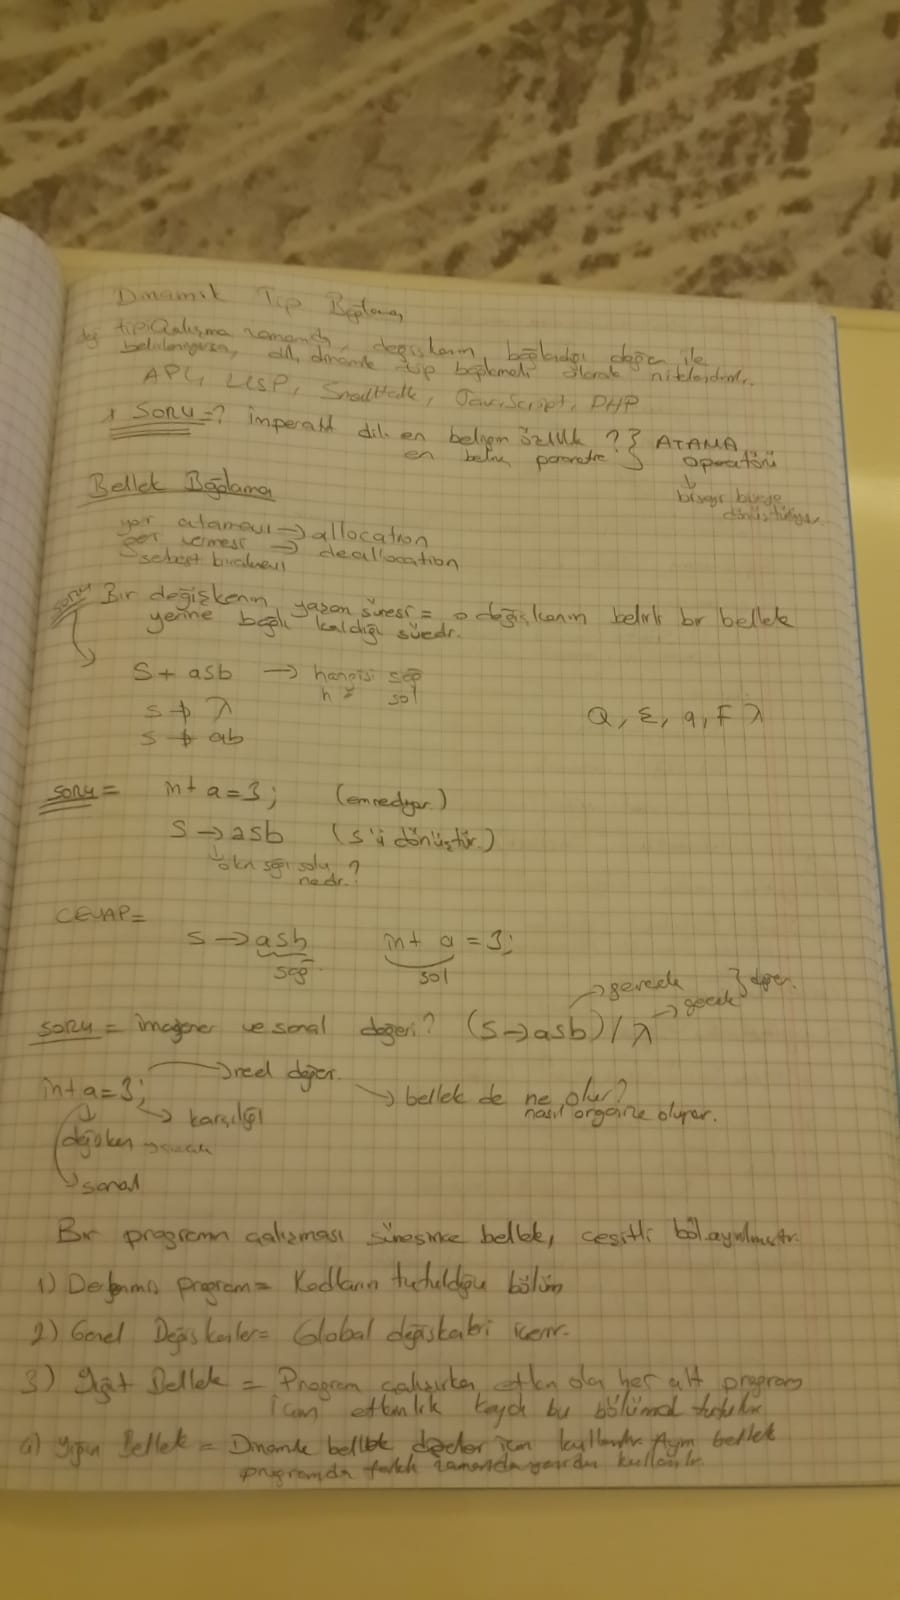 Dinamik Tip Bağlama
tipi çalışma zamanında, değişkenin bağlandığı değer ile
belirleniyorsa, dil, dinamik tip bağlamalı olarak nitelendirilir.
APL, LISP, SmallTalk, JavaScript, PHP
* SORU =? imperatif dil. en belirgin özellik ?} ATAMA
en belirli parametre } operatörü
birşeyi birşeye
dönüştürüyor
Bellek Bağlama
yer ataması → allocation
geri vermesi → deallocation
serbest bırakması
soru Bir değişkenin yaşam süresi = o değişkenin belirli bir bellek
yerine bağlı kaldığı süredir.
S → asb → hangisi sağ
h " sol
S → λ
S → ab
Q, Σ, q, F λ
SORU = int a=3; (emrediyor.)
S → asb (S'i dönüştür.)
okun sağı solu
nedir?
CEVAP=
S → asb int a = 3;
sağ sol
SORU = imajiner ve sanal değeri? (S → asb) / λ
→ gerçek
→ gerçek } değer.
int a=3; → reel değer.
→ karşılığı
→ bellek de ne olur?
nasıl organize oluyor.
değişken
→ sanal
Bir programın çalışması süresince bellek, çeşitli böl ayrılmıştır.
1) Derlenmiş program = Kodların tutulduğu bölüm
2) Genel Değişkenler = Global değişkenleri içerir.
3) Yığıt Bellek = Program çalışırken etkin olan her alt program
için etkinlik kaydı bu bölümde tutulur.
4) Yığın Bellek = Dinamik bellek için kullanılır. Aynı bellek
programda farklı zamanda yeniden kullanılır.